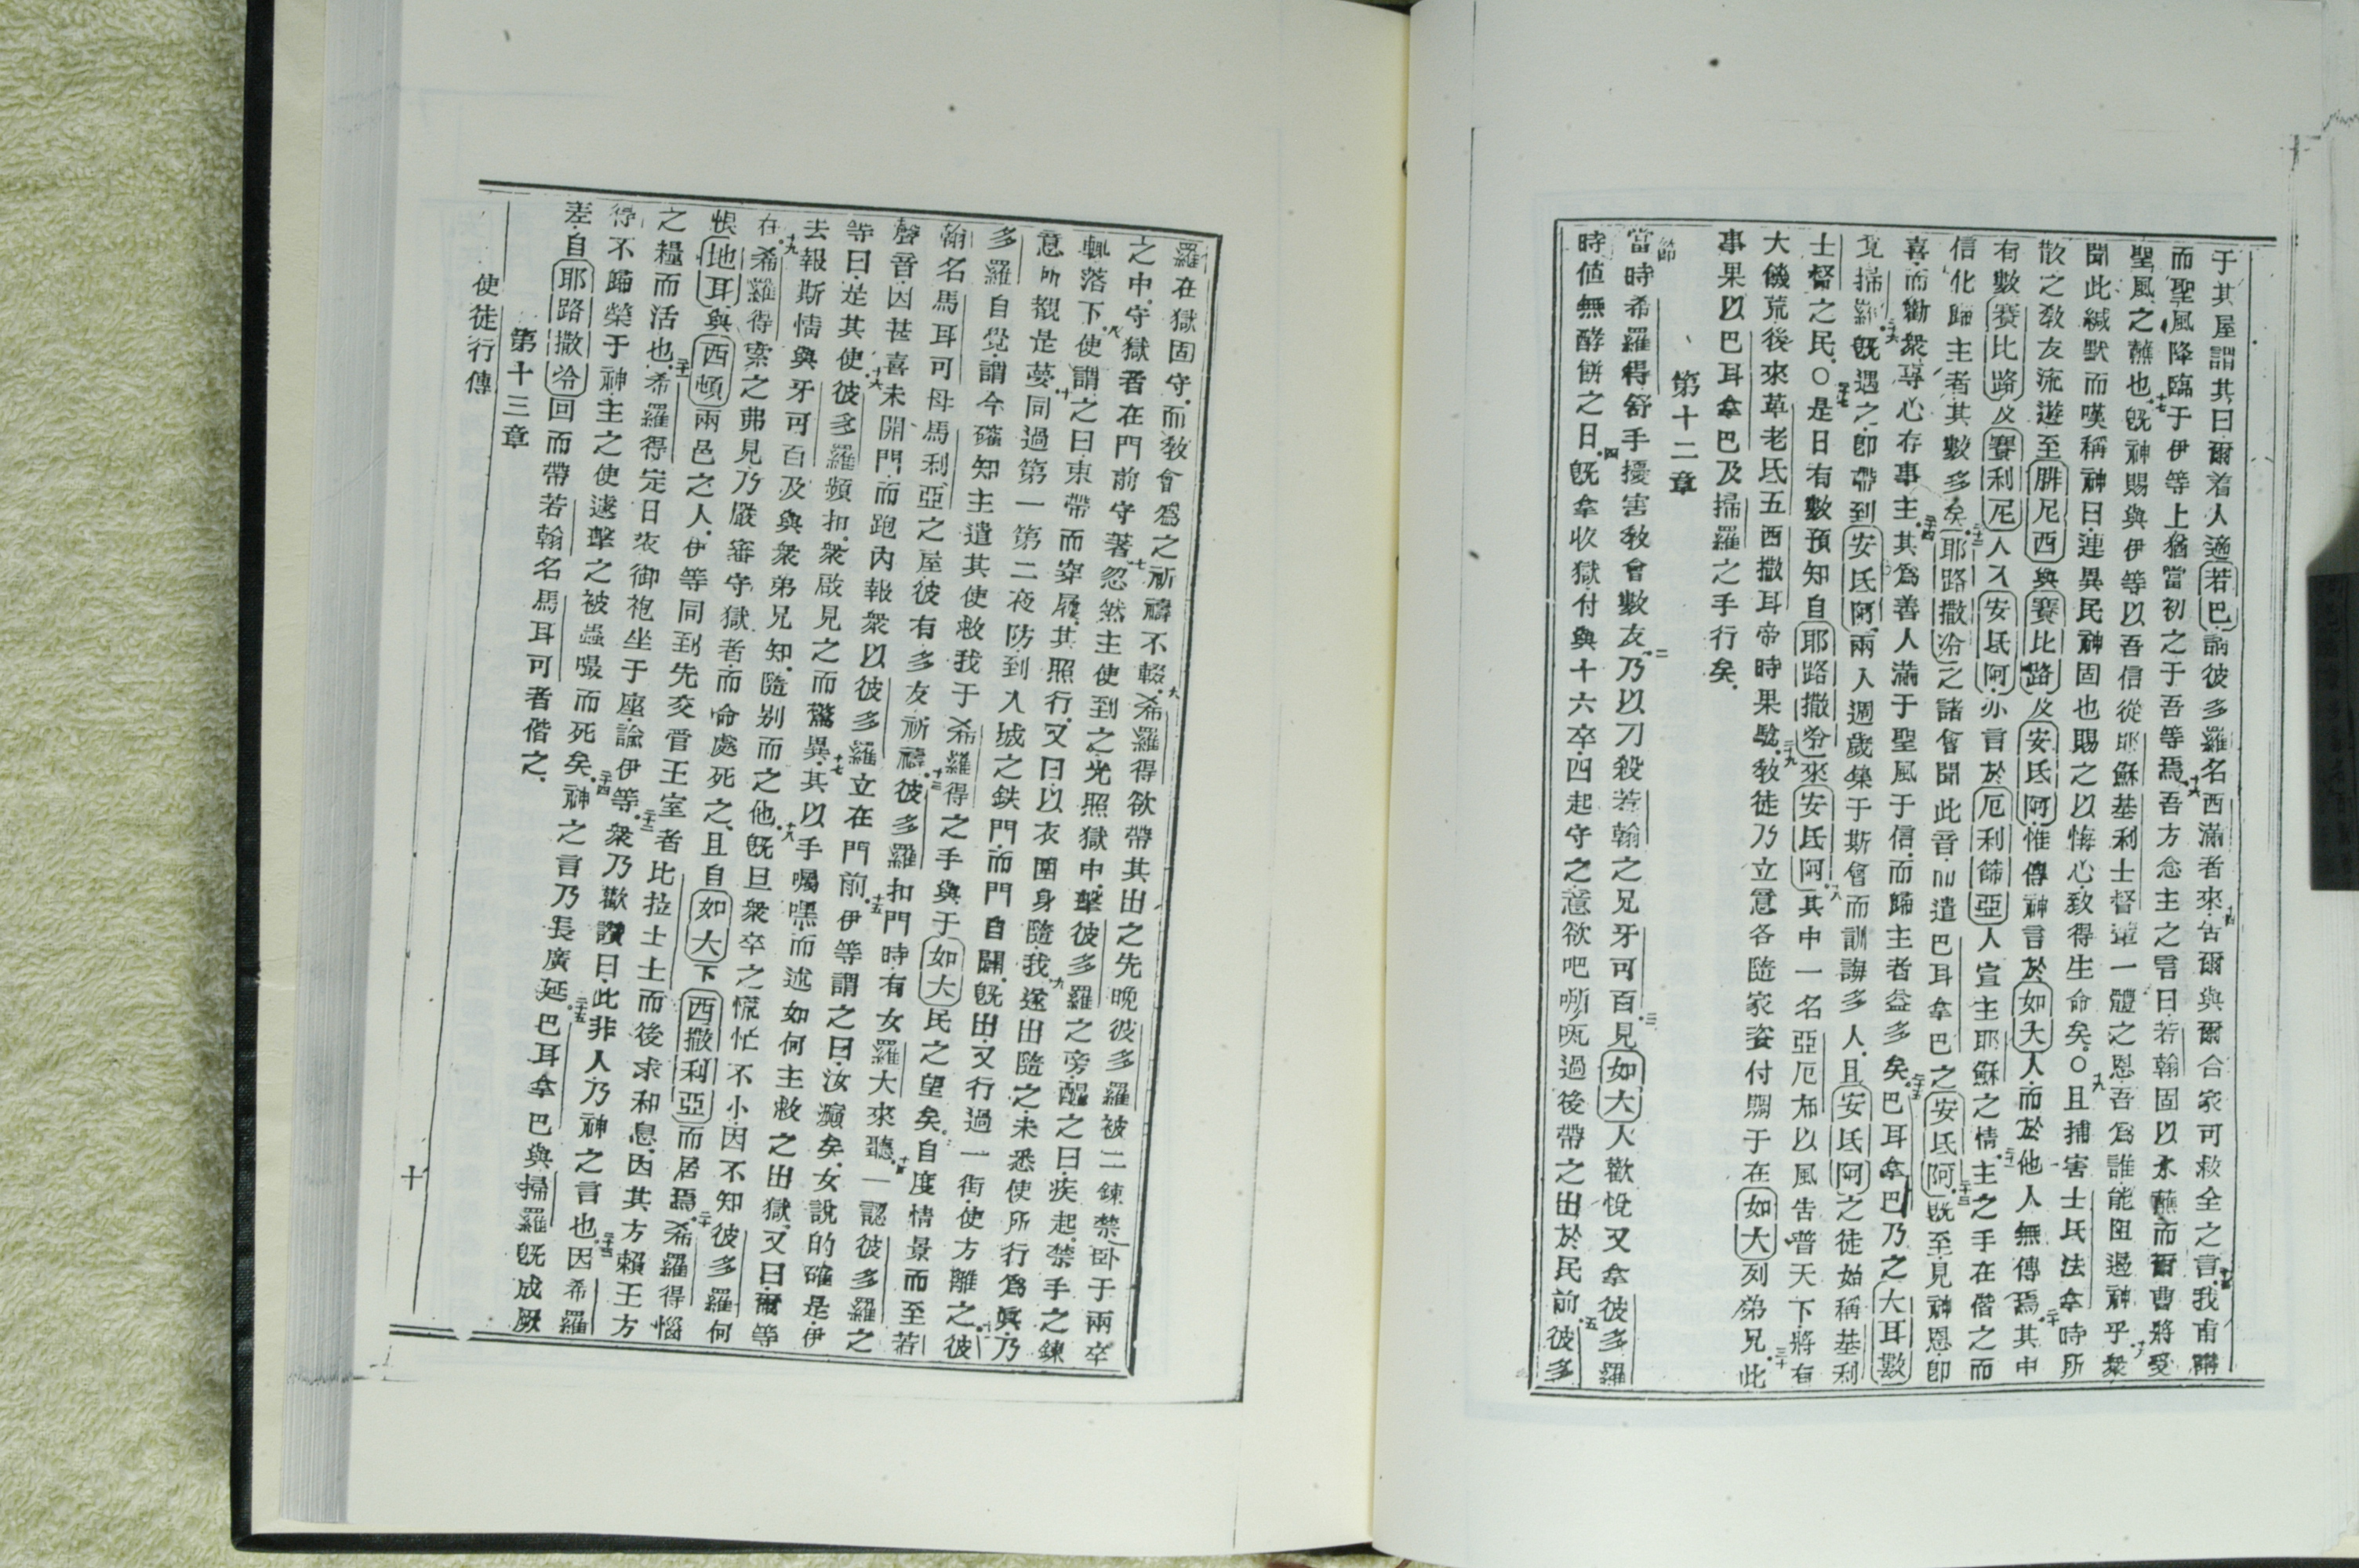 于其屋謂其曰爾着人適若巴請彼多羅名西滿者來十四吿爾與爾合家可救全之言十五我甫講
而聖風降臨于伊等上猶當初之于吾等焉十六吾方念主之言曰若翰固以水蘸而爾曹將受
聖風之蘸也十七旣神賜與伊等以吾信從耶穌基利士督輩一體之恩吾爲誰能阻遏神乎十八衆
聞此緘默而嘆稱神曰連異民神固也賜之以悔心致得生命矣○十九且捕害士氐法拿時所
散之敎友流遊至腓尼西與賽比路及安氐阿惟傳神言於如大人而於他人無傳焉二十其中
有數賽比路及賽利尼人入安氐阿亦言於厄利篩亞人宣主耶穌之情二一主之手在偕之而
信化歸主者其數多矣二十二耶路撒冷之諸會聞此音而遣巴耳拿巴之安氐阿二十三旣至見神恩卽
喜而勸衆專心存事主二十四其爲善人滿于聖風于信而歸主者益多矣二十五巴耳拿巴乃之大耳數
覓掃羅二十六旣遇之卽帶到安氐阿兩人週歲集于斯會而訓誨多人且安氐阿之徒始稱基利
士督之民○二十七是日有數預知自耶路撒冷來安氐阿二十八其中一名亞厄布以風吿普天下將有
大饑荒後來革老氐五西撒耳帝時果騐二十九敎徒乃立意各隨家姿付賙于在如大列弟兄三十此
事果以巴耳拿巴及掃羅之手行矣
第十二章
節當時希羅得舒手擾害敎會數友二乃以刀殺若翰之兄牙可百三見如大人歡悅又拿彼多羅
時値無酵餅之日四旣拿收獄付與十六卒四起守之意欲吧嘶旣過後帶之出於民前五彼多
羅在獄固守而敎會爲之祈禱不輟六希羅得欲帶其出之先晚彼多羅被二鍊禁臥于兩卒
之中守獄者在門前守著七忽然主使到之光照獄中擊彼多羅之旁醒之曰疾起禁手之鍊
輒落下八使謂之曰束帶而穿屨其照行又曰以衣圍身隨我九遂出隨之未悉使所行爲眞乃
意所覩是夢十同過第一第二夜防到入城之鉄門而門自開旣出又行過一街使方離之十一彼
多羅自覺謂今確知主遣其使救我于希羅得之手與于如大民之望矣十二自度情景而至若
翰名馬耳可母馬利亞之屋彼有多友祈禱十三彼多羅扣門時有女羅大來聽十四一認彼多羅之
聲音因甚喜未開門而跑內報衆以彼多羅立在門前十五伊等謂之曰汝癲矣女說的確是伊
等曰是其使十六彼多羅頻扣衆啟見之而驚異十七其以手囑嘿而述如何主救之出獄又曰爾等
去報斯情與牙可百及與衆弟兄知隨别而之他十八旣旦衆卒之慌忙不小因不知彼多羅何
在十九希羅得索之弗見乃嚴審守獄者而命處死之且自如大下西撒利亞而居焉二十希羅得惱
恨地耳與西頓兩邑之人伊等同到先交管王室者比拉士士而後求和息因其方賴王方
之糧而活也二十一希羅得定日衣御袍坐于座諭伊等二十二衆乃歡讚曰此非人乃神之言也二十三因希羅
得不歸榮于神主之使遂擊之被蟲嘬而死矣二十四神之言乃長廣延二十五巴耳拿巴與掃羅旣成厥
差自耶路撒冷回而帶若翰名馬耳可者偕之
第十三章
使徒行傳
十